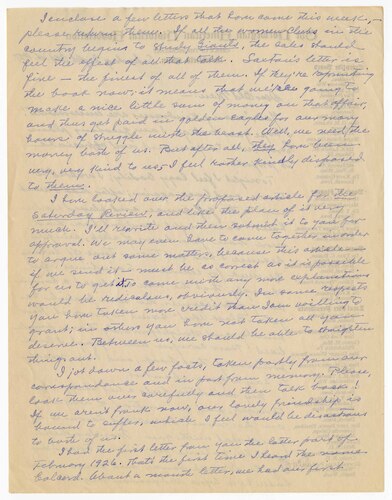 I enclose a few letters that have come this week,—
please return them. If all the women clubs in the
country begins to study Giants, the sales should
feel the effect of all that talk. Sartan's letter is
fine — the finest of all of them. If they're reprinting
the book now, it means that we're going to
make a nice little sum of money on that affair,
and thus get paid in golden eagles for our many
hours of struggle with the beast. Well, we need the
money both of us. But after all, they have been
very, very kind to us; I feel rather kindly disposed
to them.
I have looked over the proposed article for the
Saturday Review, and like the plan of it very
much. I'll rewrite and then submit it to you for
approval. We may even have to come together in order
to argue out some matters, because this article —
if we send it — must be as correct as it is possible
for us to get it, to come with any more explanations
would be rediculous, obviously. In some respects
you have taken more credit than I am willing to
grant; in others you have not taken all you
deserve. Between us, we should be able to straighten
things out.
I jot down a few facts, taken partly from our
correspondance and in part from memory. Please,
look them over carefully and then talk back!
If we aren't frank now, our lovely friendship is
bound to suffer, which I feel would be disastrous
to both of us.
I had the first letter from you the latter part of
February 1926. That's the first time I heard the name
Colcord. About a month later, we had our first